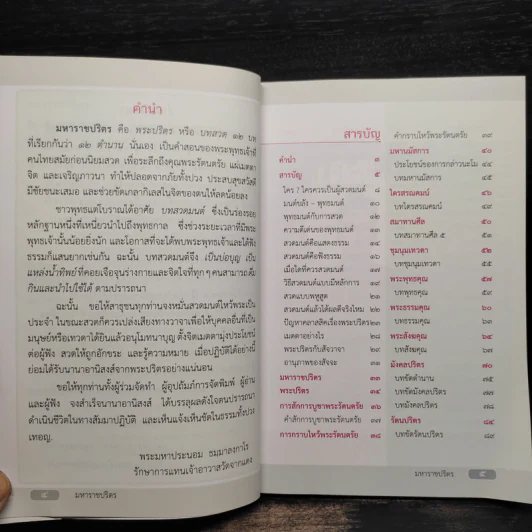 คำนำ
มหาราชปริตร คือ พระปริตร หรือ บทสวด ๑๒ บท
ที่เรียกกันว่า ๑๒ ตำนาน นั่นเอง เป็นคำสอนของพระพุทธเจ้าที่
คนไทยสมัยก่อนนิยมสวด เพื่อระลึกถึงคุณพระรัตนตรัย แผ่เมตตา
จิต และเจริญภาวนา ทำให้ปลอดจากภัยทั้งปวง ประสบสุขสวัสดิ์
มีชัยชนะเสมอ และช่วยขัดเกลากิเลสในจิตของตนให้ลดน้อยลง
ชาวพุทธแต่โบราณได้อาศัย บทสวดมนต์ ซึ่งเป็นร่องรอย
หลักฐานหนึ่งที่เหนี่ยวนำไปถึงพุทธกาล ซึ่งช่วงระยะเวลาที่มีพระ
พุทธเจ้านั้นน้อยยิ่งนัก และโอกาสที่จะได้พบพระพุทธเจ้าและได้ฟัง
ธรรมก็แสนยากเช่นกัน ฉะนั้น บทสวดมนต์จึง เป็นบ่อบุญ เป็น
แหล่งน้ำทิพย์ ที่คอยเจือจุนร่างกายและจิตใจที่ทุก ๆ คนสามารถดื่ม
กินและนำไปใช้ได้ ตามปรารถนา
ฉะนั้น ขอให้สาธุชนทุกท่านจงหมั่นสวดมนต์ไหว้พระเป็น
ประจำ ในขณะสวดก็ควรเปล่งเสียงทางวาจาเพื่อให้บุคคลอื่นที่เป็น
มนุษย์หรือเทวดาได้ยินแล้วอนุโมทนาบุญ ตั้งจิตเมตตามุ่งประโยชน์
ต่อผู้ฟัง สวดให้ถูกอักขระ และรู้ความหมาย เมื่อปฏิบัติได้อย่างนี้
ย่อมได้รับนานาอานิสงส์จากพระปริตรอย่างแน่นอน
ขอให้ทุกท่านทั้งผู้ร่วมจัดทำ ผู้อุปถัมภ์การจัดพิมพ์ ผู้อ่าน
และผู้ฟัง จงสำเร็จนานาอานิสงส์ ได้บรรลุผลดังใจตนปรารถนา
ดำเนินชีวิตในทางสัมมาปฏิบัติ และเห็นแจ้งเห็นชัดในธรรมทั้งปวง
เทอญ.
พระมหาประนอม ธมฺมาลงฺกาโร
รักษาการแทนเจ้าอาวาสวัดจากแดง
๔ มหาราชปริตร
สารบัญ
คำนำ ๓
สารบัญ ๕
ใคร ? ใครควรเป็นผู้สวดมนต์ ๘
มนต์ขลัง – พุทธมนต์
พุทธมนต์กับการสวด ๑๒
ความดีเด่นของพุทธมนต์ ๑๓
สวดมนต์คือแสดงธรรม ๑๔
สวดมนต์คือฟังธรรม
เมื่อใดที่ควรสวดมนต์ ๑๗
วิธีสวดมนต์แบบมีหลักการ
สวดแบบพหูสูต ๒๑
สวดมนต์แล้วได้ผลดีจริงไหม
ปัญหาคลาสสิคเรื่องพระปริตร ๒๓
เมตตาอย่างไร
พระปริตรกับสัจวาจา
อานุภาพของสัจจะ
มหาราชปริตร ๓๓
พระปริตร ๓๔
การสักการบูชาพระรัตนตรัย ๓๖
คำสักการบูชาพระรัตนตรัย ๓๗
การกราบไหว้พระรัตนตรัย ๓๘
คำกราบไหว้พระรัตนตรัย ๓๙
มหานมัสการ ๔๐
ประโยชน์ของการกล่าวนะโม
บทมหานมัสการ ๔๕
ไตรสรณคมน์ ๔๖
บทไตรสรณคมน์ ๔๙
สมาทานศีล ๕๐
บทสมาทานศีล ๕ ๕๑
ชุมนุมเทวดา ๕๒
บทชุมนุมเทวดา ๕๕
พระพุทธคุณ ๕๗
บทพุทธคุณ ๕๙
พระธรรมคุณ ๖๐
บทธรรมคุณ
พระสังฆคุณ ๖๔
บทสังฆคุณ ๖๗
มังคลปริตร ๗๐
บทขัดตำนาน ๗๕
บทขัดมังคลปริตร ๗๗
บทมังคลปริตร ๗๘
รัตนปริตร ๘๔
บทขัดรัตนปริตร ๘๙
มหาราชปริตร ๕